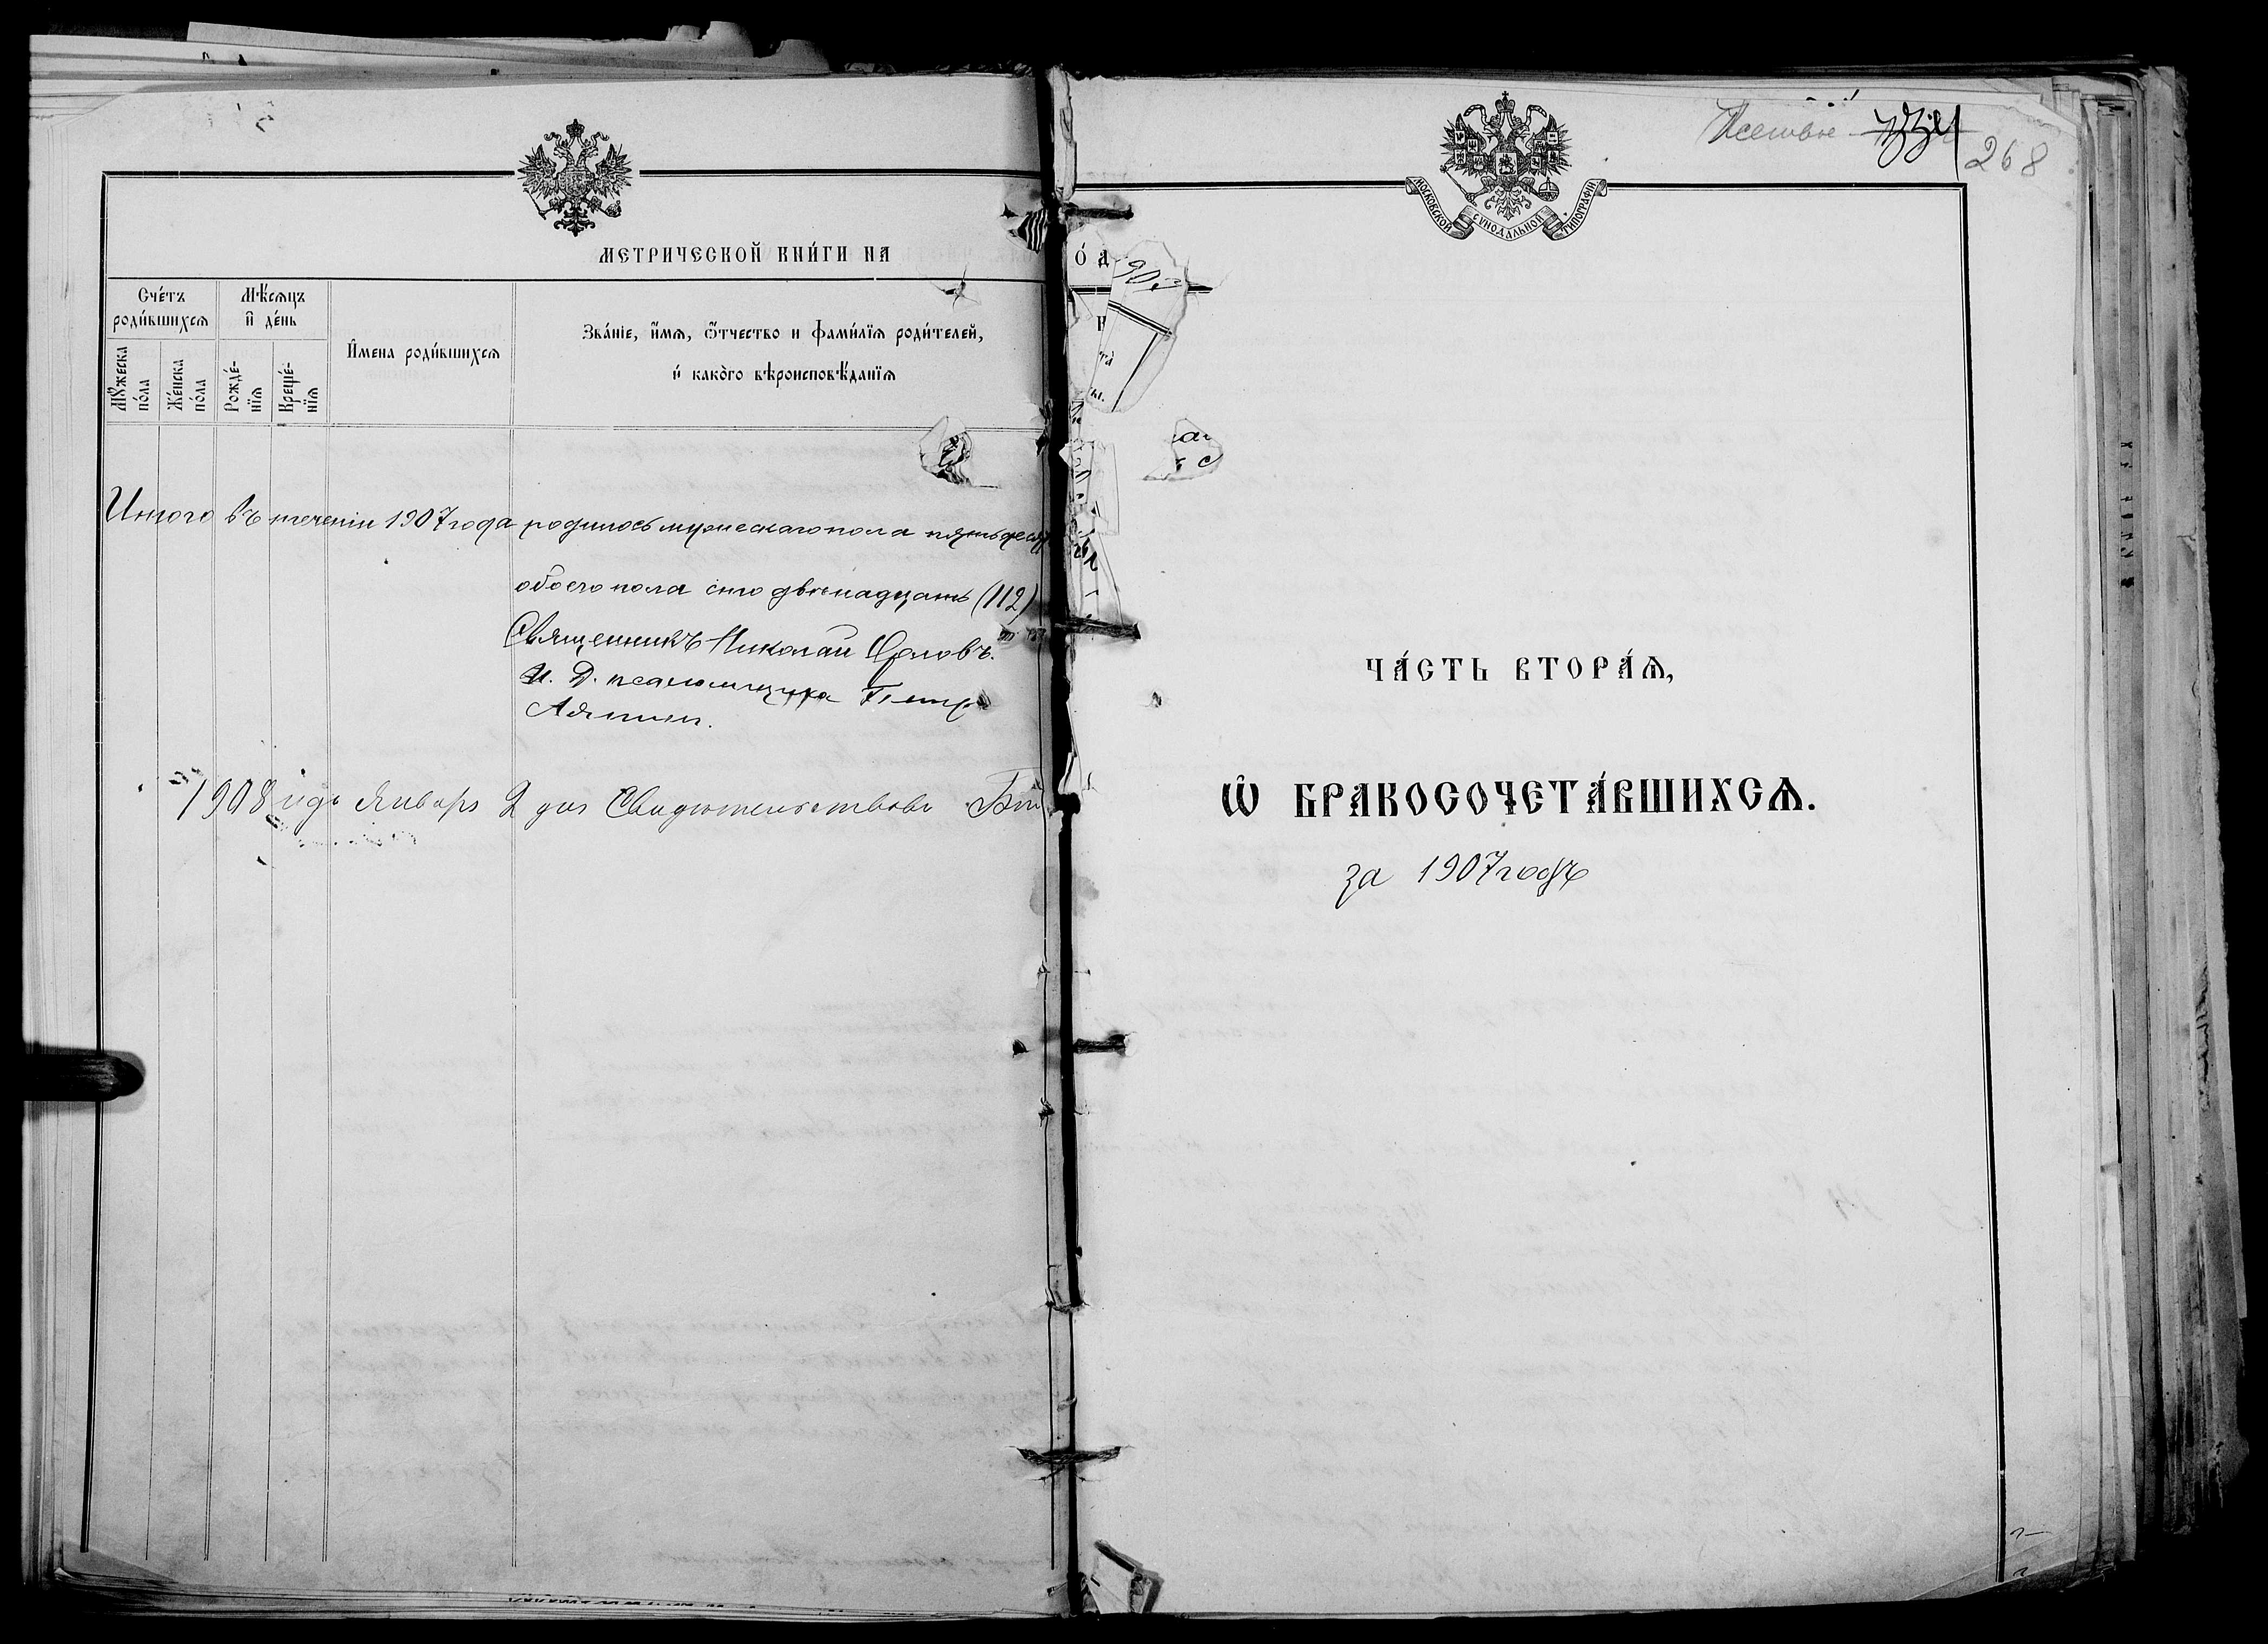 МЕТРИЧЕСКОЙ КНИ́ГИ НА
Сче́тъ роди́вшихсѧ
Мѣ́сѧцъ и҆ де́нь
И҆мена роди́вшихсѧ
Зва́нїе, и҆́мѧ, ѻ҆́тчество и фами́лїѧ роди́телей,
и҆ како́гѡ вѣроисповѣ́данїѧ
Мꙋ́жеска по́ла
Же́нска по́ла
Рожде́нїѧ
Креще́нїѧ
Итого въ теченіи 1907 года родилось мужескаго пола пятьдеся
обоего пола сто двѣнадцать (112)
Священникъ Николай Орловъ.
И. Д. псаломщика Петръ
1908 года Января 2 дня Свидѣтельствовалъ
268
МОСКОВСКОЙ СѴНОДАЛЬНОЙ ТИПОГРАФІИ
ЧА́СТЬ ВТОРА́Ѧ,
Ѡ҆ БРАКОСОЧЕТА́ВШИХСѦ.
за 1907 годъ